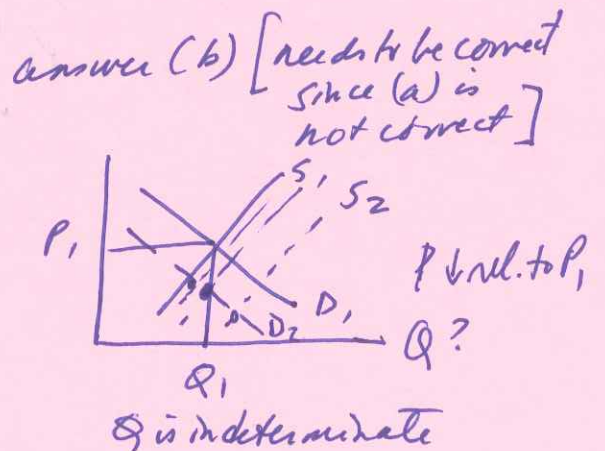 answer (b) [needs to be correct
since (a) is
not correct]
S1
S2
P1
P ↓ rel. to P1
D1
D2
Q ?
Q1
Q is indeterminate